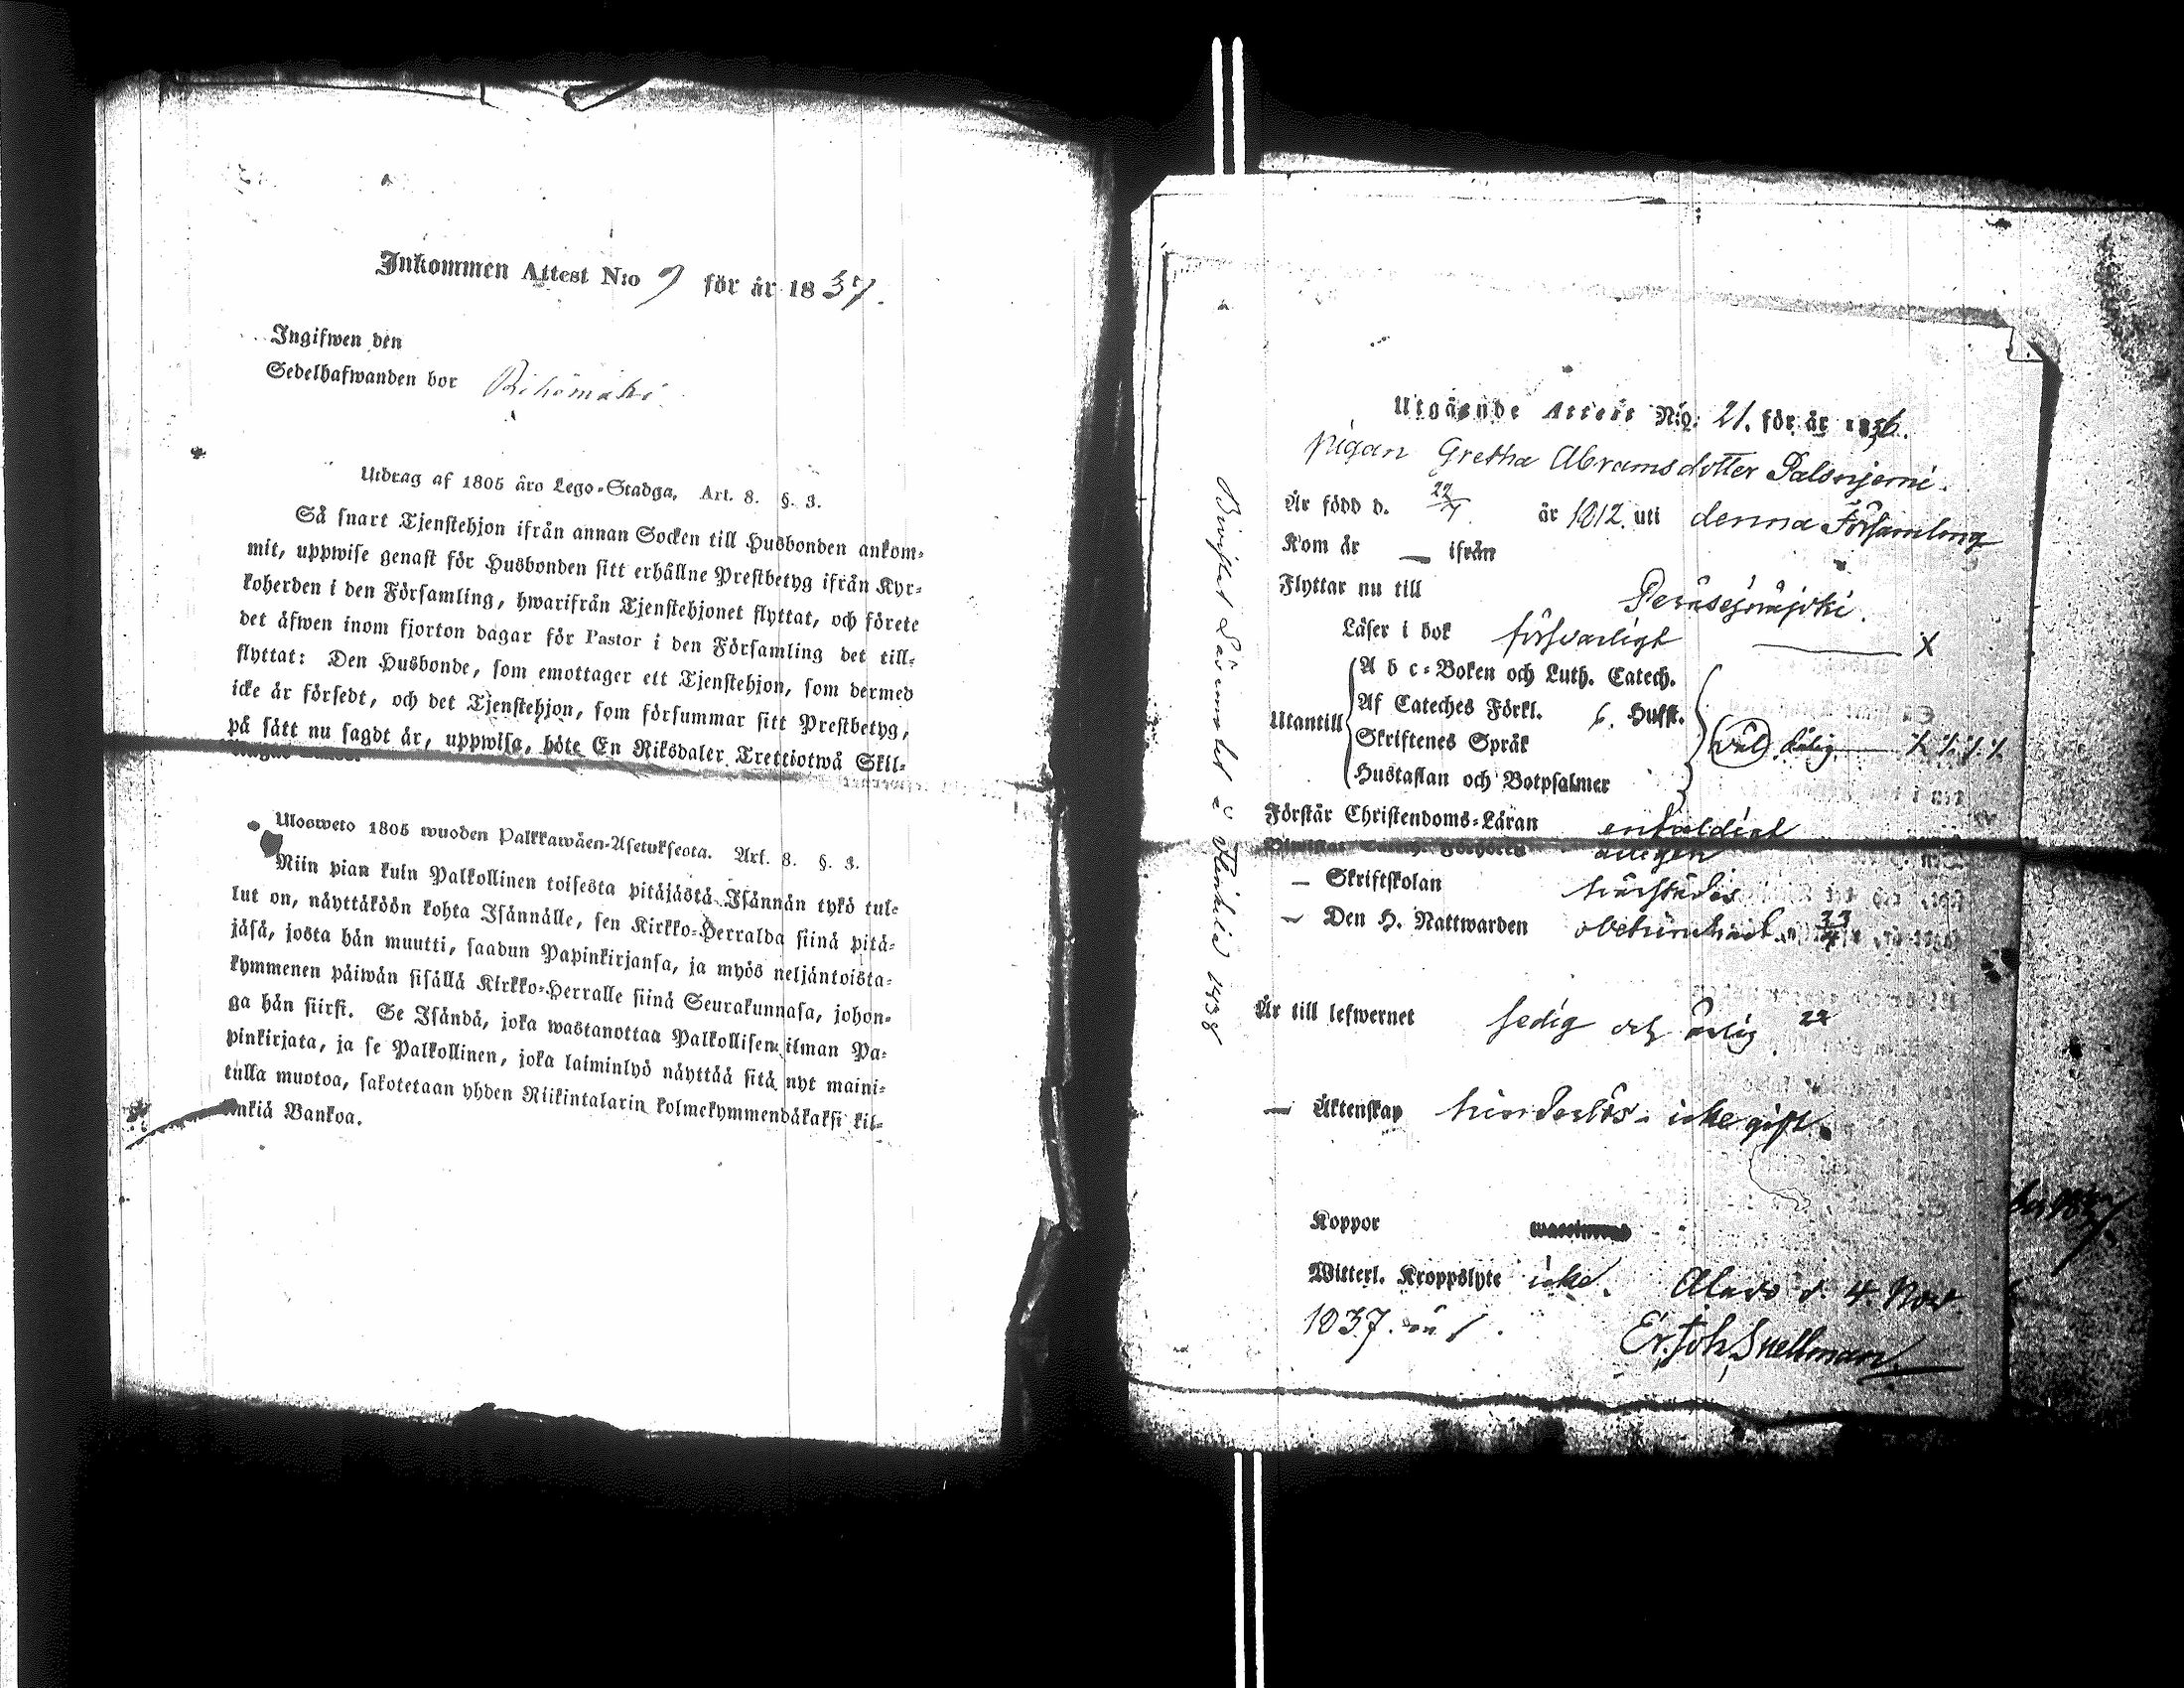 Inkommen Attest N:o 9 för år 1837.
Ingifwen den
Sedelhafwanden bor Rihõmäki
Utdrag af 1805 åro Lego-Stadga, Art. 8. §. 3.
Så snart Tjenstehjon ifrån annan Socken till Husbonden ankom-
mit, uppwise genast för Husbonden sitt erhållne Prestbetyg ifrån Kyr-
koherden i den Församling, hwarifrån Tjenstehjonet flyttat, och förete
det äfwen inom fjorton dagar för Pastor i den Församling det till-
flyttat: Den Husbonde, som emottager ett Tjenstehjon, som dermed
icke är försedt, och det Tjenstehjon, som försummar sitt Prestbetyg,
på sätt nu sagdt är, uppwisa, böte En Riksdaler Trettiotwå Skil-
Ulosweto 1805 wuoden Palkkawäen-Asetuksesta. Art. 8. §. 3.
Niin pian kuin Palkollinen toisesta pitäjästä Isännän tykö tul-
lut on, näyttäköön kohta Isännälle, sen Kirkko-Herralda siinä pitä-
jäsä, josta hän muutti, saadun Papinkirjansa, ja myös neljäntoista-
kymmenen päiwän sisällä Kirkko-Herralle siinä Seurakunnasa, johon-
ga hän siirsi. Se Isändä, joka wastanottaa Palkollisen ilman Pa-
pinkirjata, ja se Palkollinen, joka laiminlyö näyttää sitä nyt maini-
tulla muotoa, sakotetaan yhden Riikintalarin kolmekymmendäkaksi kil-
linkiä Bankoa.
Utgående Attest N:o. 21. för år 1836.
pigan Gretha Abramsdotter Palonjemi.
Är född d. 22/7. år 1812. uti denna Församling
Kom år — ifrån
Flyttar nu till Peräsejnäjoki.
Läser i bok försvarligt X
A b c-Boken och Luth. Catech.
Af Cateches Förkl. 6. Hufst.
Utantill
Skriftenes Språk
Hustaflan och Botpsalmer
Förstår Christendoms-Läran enfaldigt
— Skriftskolan härstädes
— Den H. Nattwarden obehindrad 23/4
Är till lefwernet sedig och ärlig 22
— Äktenskap hinderlös - icke gift.
Koppor
Witterl. Kroppslyte icke. Alavo d. 4. Nov.
1837.
Er. Joh. Snellman.